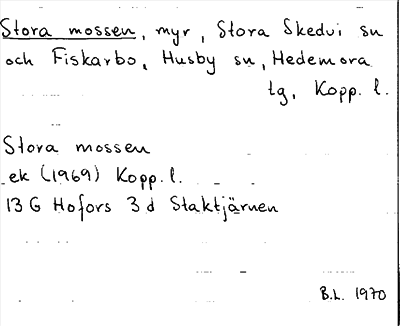 Stora mossen, myr, Stora Skedvi sn
och Fiskarbo, Husby sn, Hedemora
tg, Kopp. l.
Stora mossen
ek (1969) Kopp. l.
13 G Hofors 3 d Staktjärnen
B.L. 1970